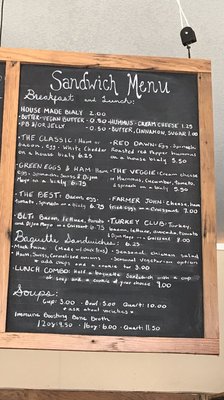 Sandwich Menu
Breakfast and Lunch:
HOUSE MADE BIALY 2.00
· BUTTER · VEGAN BUTTER - 0.50 · HUMMUS · CREAM CHEESE 1.25
· PB &/or JELLY - 0.50 · BUTTER, CINNAMON, SUGAR 1.00
· THE CLASSIC: Ham or bacon, egg, White Cheddar on a house bialy 6.25
· RED DAWN: Egg, Spinach, Roasted red Pepper hummus on a house bialy 5.50
· GREEN EGGS & HAM: Ham, egg, Spinach, Dijon Mayo on a bialy 6.75
· THE VEGGIE: Cream cheese or Hummus, Cucumber, tomato, & Spinach on a bialy 5.50
· THE BEST: Bacon, egg, tomato, Spinach 6.75
· FARMER JOHN: Cheese, ham, fried egg on a Croissant 7.00
· BLT: Bacon, lettuce, tomato, Dijon Mayo on a Croissant 6.00
· TURKEY CLUB: Turkey, bacon, lettuce, avocado, tomato, Dijon Mayo on a Croissant 8.00
Baguette Sandwiches: 6.25
· Ham, Swiss, Caramelized onions
· Seasonal chicken salad
· Seasonal vegetarian option
* add chips and a cookie for 3.00
· LUNCH COMBO: Half a baguette Sandwich with a cup of soup and a cookie of your choice 9.00
Soups:
Cup: 3.00 · Bowl: 5.00 Quart: 10.00
* ask about varieties *
Immune Boosting Bone Broth
12oz: 4.50 · Pint: 6.00 · Quart: 11.50